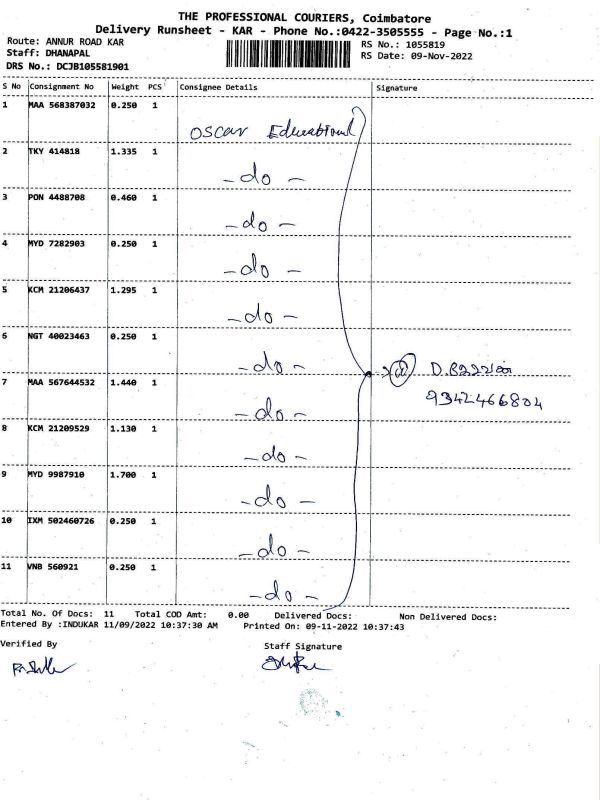 THE PROFESSIONAL COURIERS, Coimbatore
Delivery Runsheet - KAR - Phone No.:0422-3505555 - Page No.:1
Route: ANNUR ROAD KAR
Staff: DHANAPAL
DRS No.: DCJB105581901
RS No.: 1055819
RS Date: 09-Nov-2022
S No Consignment No Weight PCS Consignee Details Signature
1 MAA 568387032 0.250 1 Oscar Educational
2 TKY 414818 1.335 1 - do -
3 PON 4488708 0.460 1 - do -
4 MYD 7282903 0.250 1 - do -
5 KCM 21206437 1.295 1 - do -
6 NGT 40023463 0.250 1 - do -
D.
7 MAA 567644532 1.440 1 - do -
9342466804
8 KCM 21209529 1.130 1 - do -
9 MYD 9987910 1.700 1 - do -
10 IXM 502460726 0.250 1 - do -
11 VNB 560921 0.250 1 - do -
Total No. Of Docs: 11 Total COD Amt: 0.00 Delivered Docs: Non Delivered Docs:
Entered By :INDUKAR 11/09/2022 10:37:30 AM Printed On: 09-11-2022 10:37:43
Verified By Staff Signature